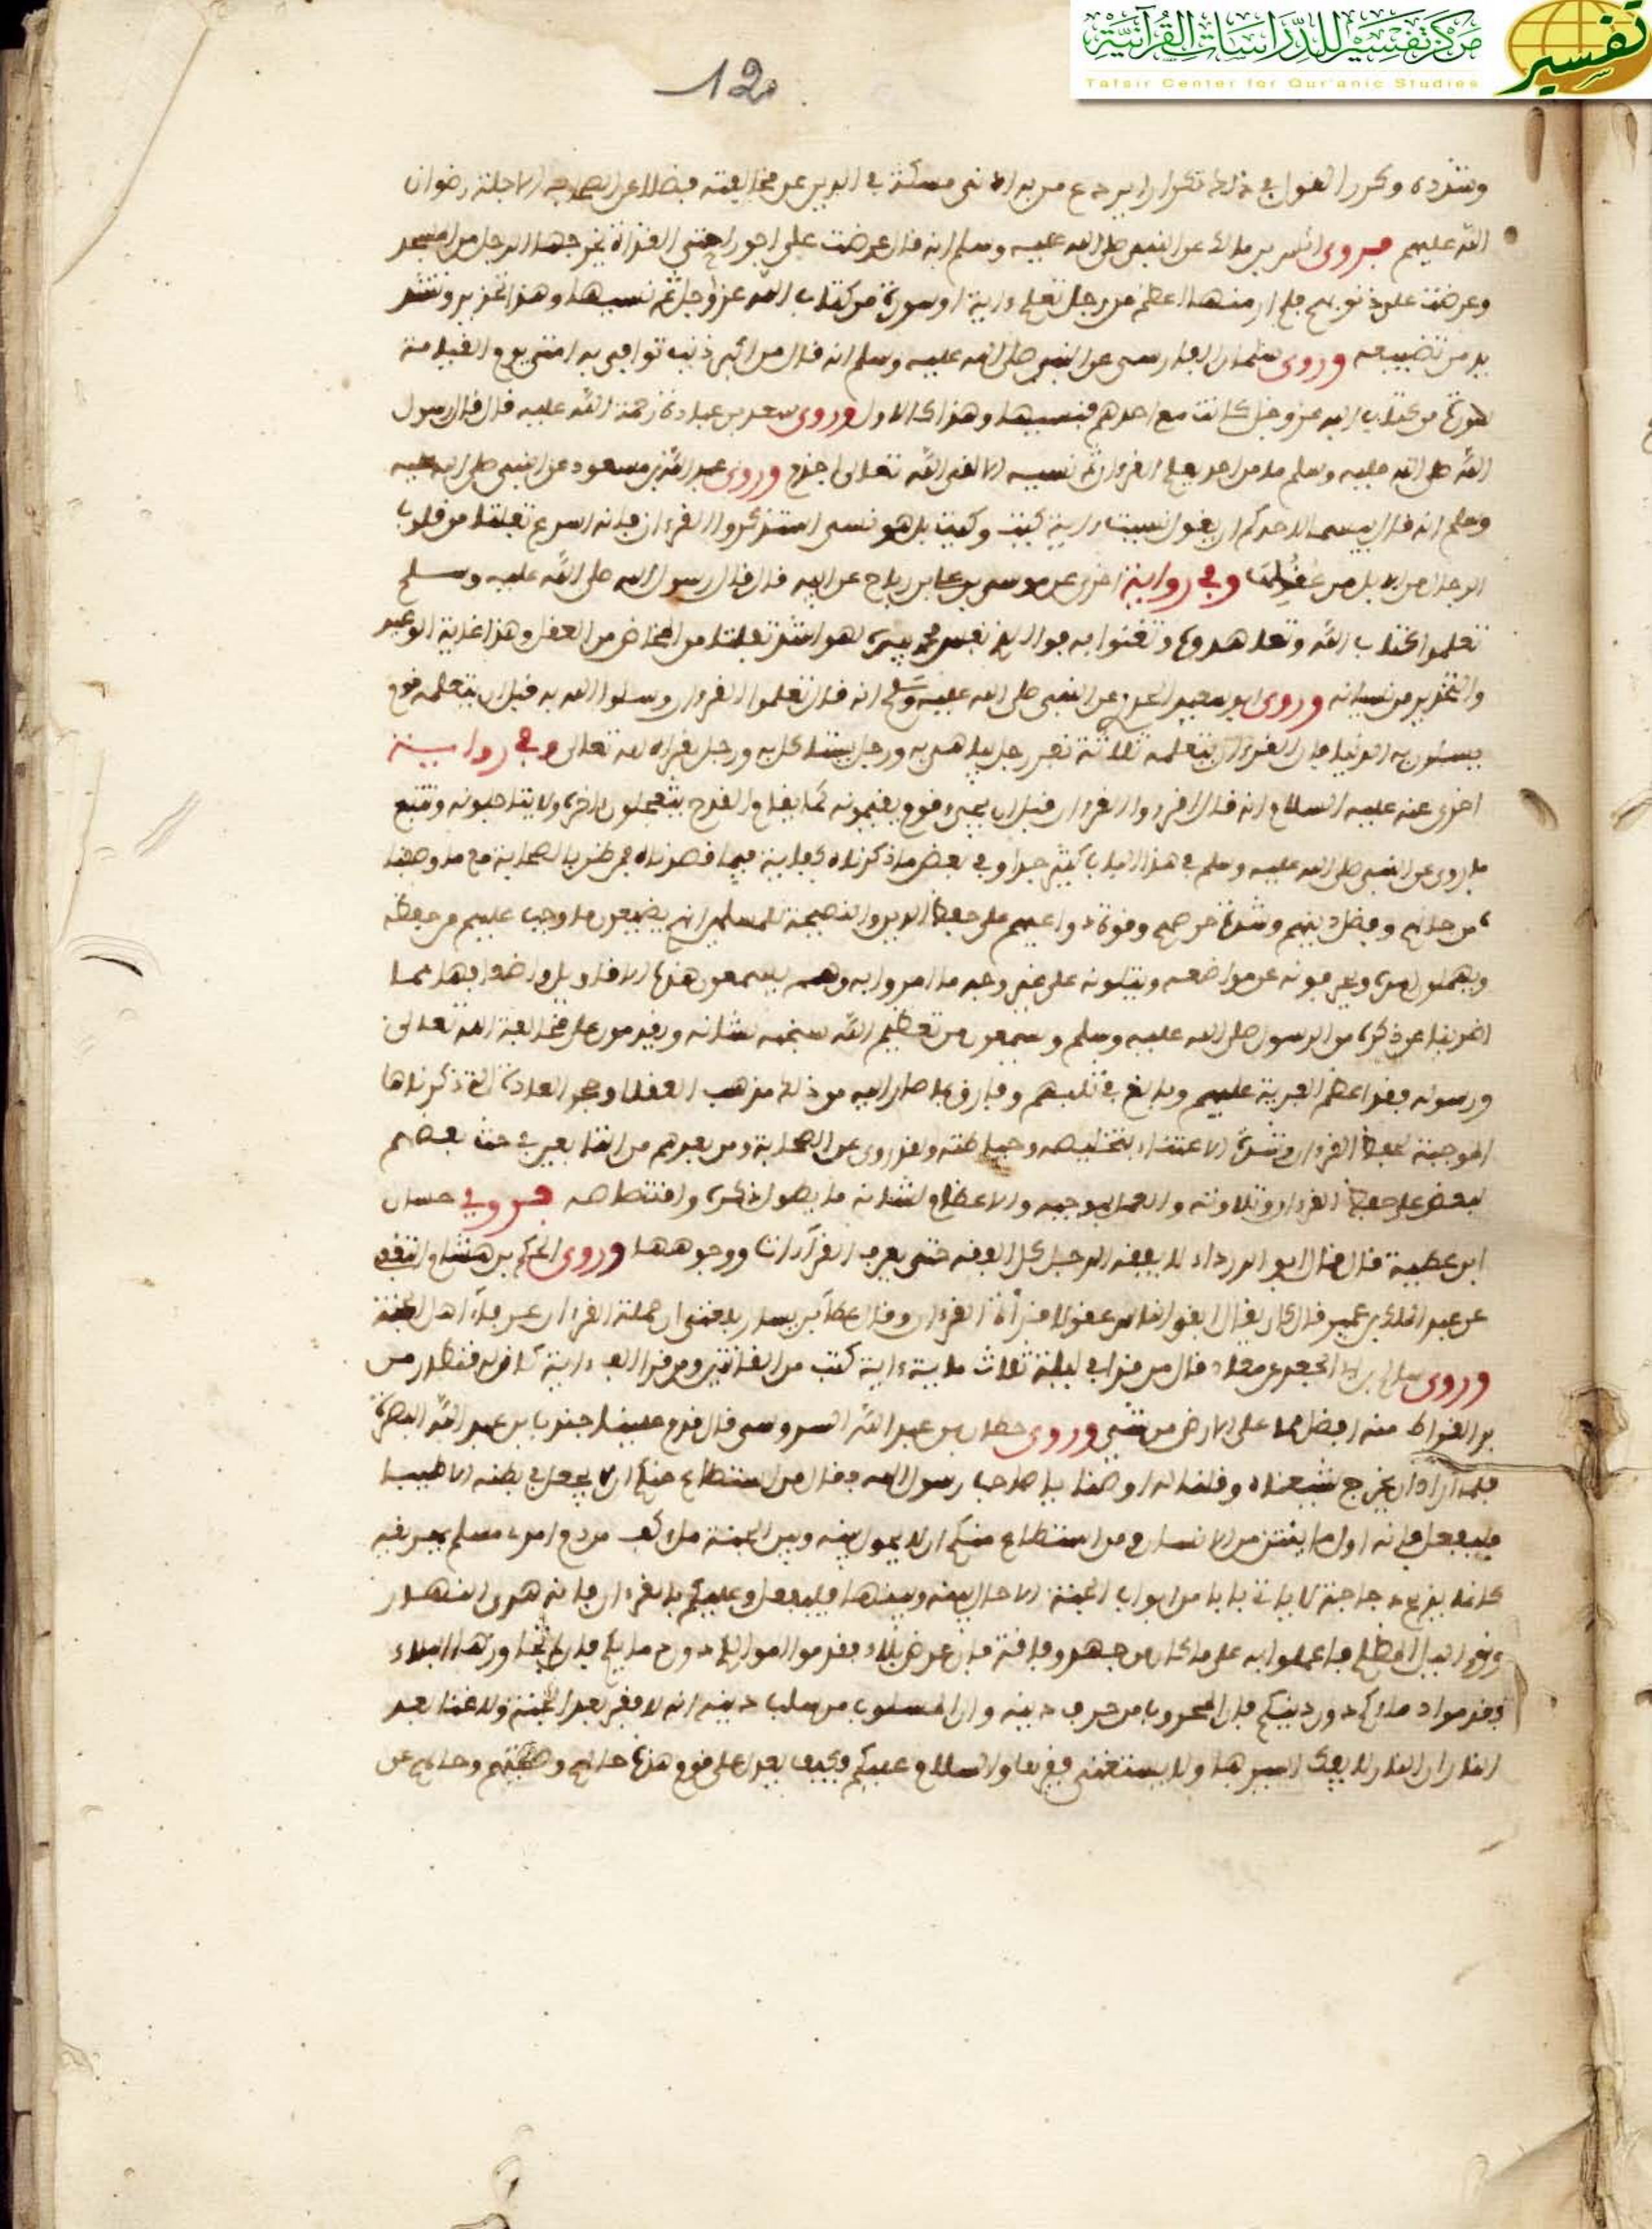 مركز تفسير للدراسات القرآنية
تفسير
Tafsir Center for Qur'anic Studies
120
وشدده وكرر القول في ذلك تكرارا يردع من به ادنى مسكة في الدين عن مخالفته فضلا عن الصحابة الاجلة رضوان
الله عليهم فروى انس بن مالك عن النبي صلى الله عليه وسلم انه قال عرضت على اجور امتي حتى القذاة يخرجها الرجل من المسجد
وعرضت علي ذنوبهم فلم ار منها اعظم من رجل تعلم ءاية او سورة من كتاب الله عز وجل ثم نسيها وهذا تحذير وتشد
يد من تضييعه وروى سلمان الفارسي عن النبي صلى الله عليه وسلم انه قال من اكبر ذنب توافي به امتي يوم القيامة
سورة من كتاب الله عز وجل كانت مع احدهم فنسيها وهذا كالاول وروى سعد بن عبادة رحمة الله عليه قال قال رسول
الله صلى الله عليه وسلم ما من احد يعلم القرءان ثم نسيه الا لقي الله تعالى اجذم وروى عبد الله بن مسعود عن النبي صلى الله عليه
وسلم انه قال بيسما لاحدكم ان يقول نسيت ءاية كيت وكيت بل هو نسي استذكروا القرءان فانه اسرع تفلتا من قلوب
الرجال من الابل من عقلها وفي رواية اخرى عن موسى بن علي بن رباح عن ابيه قال قال رسول الله صلى الله عليه وسلم
تعلموا كتاب الله وتعاهدوه وتغنوا به فوالذي نفس محمد بيده لهو اشد تفلتا من المخاض من العقل وهذا غاية الوعيد
والتحذير من نسيانه وروى ابو سعيد الخدري عن النبي صلى الله عليه وسلم انه قال تعلموا القرءان وسلوا الله به قبل ان يتعلمه قوم
يسئلون به الدنيا فان القرءان يتعلمه ثلاثة نفر رجل يباهي به ورجل يستاكل به ورجل يقراه لله تعالى وفي رواية
اخرى عنه عليه السلام انه قال اقرءوا القرءان قبل ان يجيء قوم يقيمونه كما يقام القدح يتعجلون اجره ولا يتاجلونه وتتبع
ما روي عن النبي صلى الله عليه وسلم في هذا الباب كثير جدا وفي بعض ما ذكرناه كفاية فيما قصدناه فمن ظن بالصحابة مع ما وصفنا
ه من حالهم وفضل دينهم وشدة حرصهم وقوة دواعيهم على حفظ الدين والنصيحة للمسلمين انهم يضيعون ما وجب عليهم من حفظه
ويهملون امره ويحرفونه عن مواضعه ويتلونه على غير وجه ما امروا به وهم يسمعون هذه الاقاويل واضعافها مما
اضربنا عن ذكره من الرسول صلى الله عليه وسلم وسمعون من تعظيم الله سبحنه شانه ويقدمون على مخالفة الله تعالى
ورسوله فقد اعظم الفرية عليهم وبالغ في ثلبهم وفارق بما صار اليه من ذلك مذهب العقلا ومجرى العادة التي ذكرناها
الموجبة لحفظ القرءان وشدة الاعتناء بتخليصه وحياطته ولقد روي عن الصحابة ومن بعدهم من التابعين في حث بعضهم
لبعض على حفظ القرءان وتلاوته والعمل بموجبه والاعظام لشانه ما يطول ذكره واقتصاصه فروي حسان
ابن عطية قال قال ابو الدرداء لا يفقه الرجل كل الفقه حتى يعرف القرآن ووجوهها وروى الحكم بن هشام الثقفي
عن عبد الملك بن عمير قال كان يقال ابقى الناس عقولا قرأة القرءان وقال عطاء بن يسار بلغني ان حملة القرءان عرفاء اهل الجنة
وروى سالم بن ابي الجعد عن معاذ قال من قرا في ليلة ثلاث ماية ءاية كتب من القانتين ومن قرا الف ءاية كان له قنطار من
بر القيراط منه افضل مما على الارض من شيء وروى حطان بن عبد الله السدوسي قال قدم علينا جندب بن عبد الله البصرة
فلما اراد ان يخرج شيعناه وقلنا له اوصنا يا صاحب رسول الله فقال من استطاع منكم ان لا يجعل في بطنه الا طيبا
فليفعل فانه اول ما ينتن من الانسان ومن استطاع منكم ان لا يحول بينه وبين الجنة ملء كف من دم امرء مسلم يهريقه
كانما يذبح دجاجة لا ياتي بابا من ابواب الجنة الا حال بينه وبينها فليفعل وعليكم بالقرءان فانه هدى النهار
ونور الليل المظلم فاعملوا به على ما كان من جهد وفاقة فان عرض بلاء فقدموا اموالكم دون دمايكم فان تجاوزها البلاء
فقدموا دماءكم دون دينكم فان المحروب من حرب دينه وان المسلوب من سلب دينه انه لا فقر بعد الجنة ولا غنا بعد
النار ان النار لا يفك اسيرها ولا يستغني فقيرها والسلام عليكم فكيف يجوز على قوم هذه حالهم وصفتهم وحالهم عن